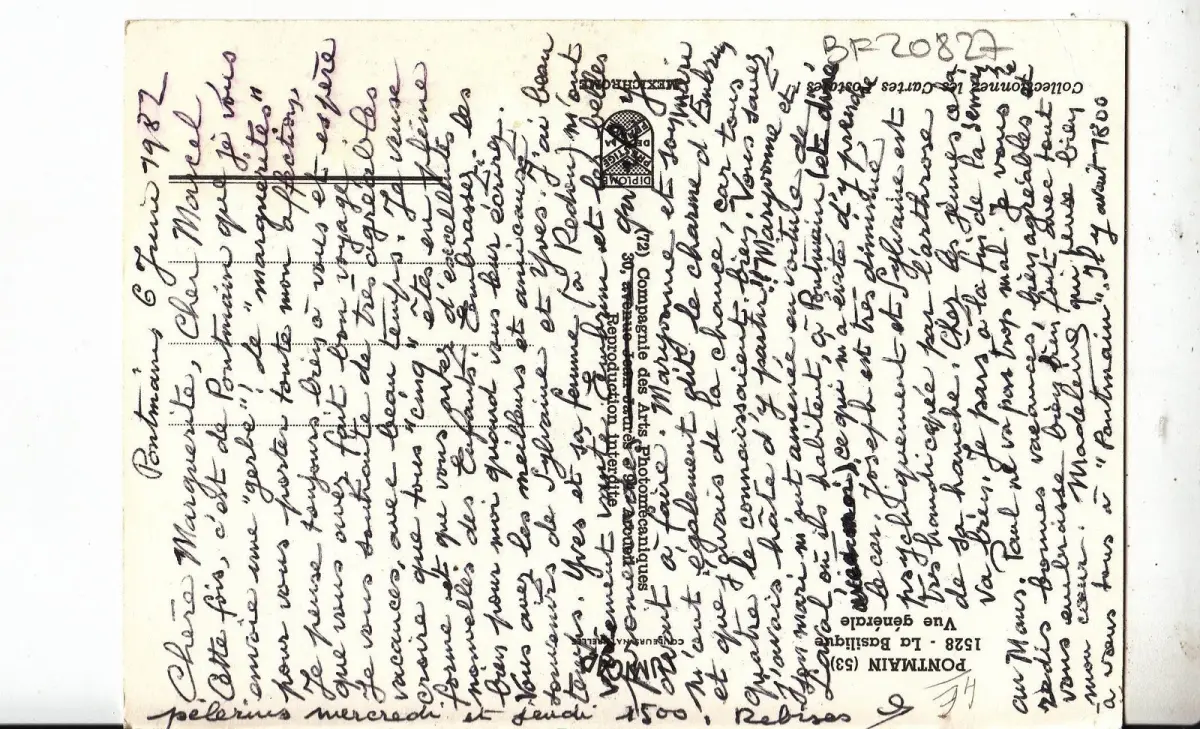 Pontmain 6 Juin 1982
Chère Marguerite, Cher Marcel
Cette fois, c'est de Pontmain que je vous
envoie une "gerbe", de "marguerites"
pour vous porter toute mon affection,
Je pense toujours bien à vous et espère
que vous avez fait bon voyage.
Je vous souhaite de très agréables
vacances, avec beau temps. Je veux
croire que tous "cinq" êtes en pleine
forme et que vous avez d'excellentes
nouvelles des Enfants. Embrassez-les
bien pour moi quand vous leur écrirez.
Vous avez les meilleurs et amicaux
souvenirs de Sylvane et Yves. J'ai beau
temps. Yves et sa femme (à Redon) m'ont
vanté Embrun et les belles
à faire. Maryvonne et son mari
m'ont également dit le charme d'Embrun
et que j'avais de la chance, car tous
quatre le connaissaient bien. Vous savez
j'avais hâte d'y partir!! Maryvonne et
son mari m'ont amenée en voiture de
Laval où ils habitent, à Pontmain
ce qui m'a évité d'y prendre
le car. Joseph est très diminué
psychiquement et Sylvaine est
très handicapée par l'arthrose
de sa hanche. Chez les jeunes ça
va bien. Je pars à la fin de la semaine
au Mans. Paul ne va pas trop mal. Je vous
redis bonnes vacances, bien agréables et
vous embrasse bien bien fort avec tout
mon cœur. Madeleine qui pense bien
à vous tous à "Pontmain". Il y avait 1800
pélerins mercredi et jeudi 1500.
BF 20827
74
Collectionnez les Cartes Postales !
MEXICHROME
DIPLOME
PRESTIGE
(72) Compagnie des Arts Photomécaniques
30, avenue Jean-Jaurès
Reproduction interdite
COULEURS NATURELLES
PONTMAIN (53)
1528 - La Basilique
Vue générale